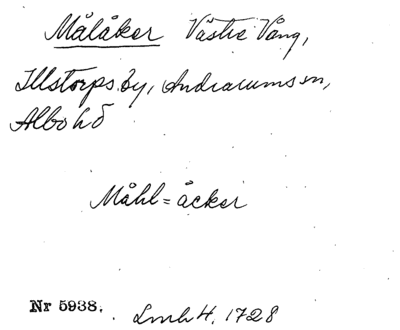 Målåker Västre Vång,
Illstorps by, Andrarums sn,
Albo hd
Måhl=åcker
Nr 5938. Lmh 4, 1728